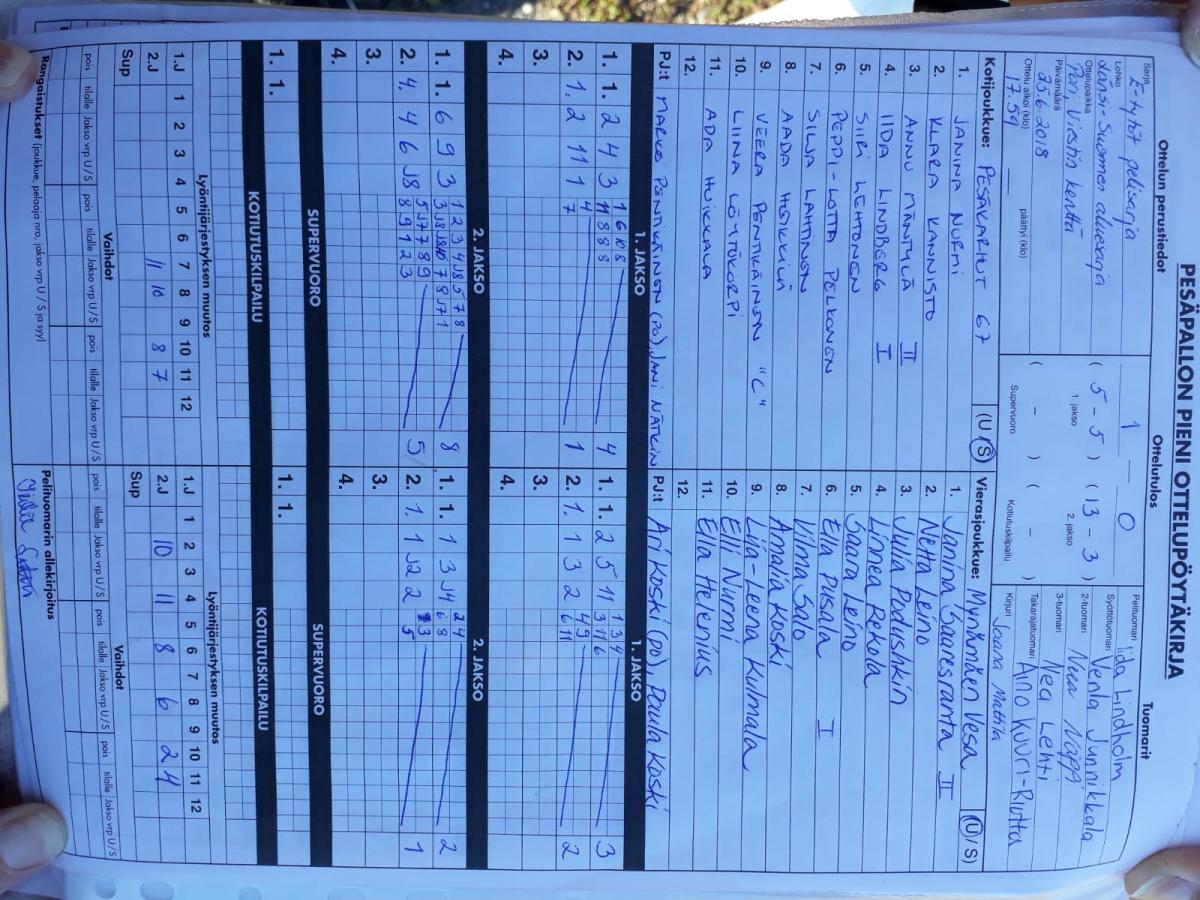 PESÄPALLON PIENI OTTELUPÖYTÄKIRJA
Ottelun perustiedot
Ottelutulos
Tuomarit
Sarja
E-tytöt pelisarja
Lohko
Länsi-Suomen aluesarja
Ottelupaikka
Pori, Viestin kenttä
Päivämäärä
25.6.2018
Ottelu alkoi (klo)
17.59
päättyi (klo)
1 — 0
( 5 - 5 ) ( 13 - 3 )
1. jakso 2. jakso
( - ) ( - )
Supervuoro Kotiutuskilpailu
Pelituomari
Iida Lindholm
Syöttötuomari
Venla Junnikkala
2-tuomari
Neea Nappi
3-tuomari
Nea Lehti
Takarajatuomari
Aino Kuuri-Riutta
Kirjuri
Jaana Mattila
Kotijoukkue: PESÄKARHUT 67 (U/S)
1. JANINA NURMI
2. KLARA KANNISTO
3. ANNU MÄNTYLÄ II
4. IIDA LINDBERG I
5. SIIRI LEHTONEN
6. PEPPI-LOTTA PELKONEN
7. SILJA LAHTINEN
8. AADA HEIKKILÄ
9. VEERA PENTIKÄINEN "C"
10. LIINA LÖYTÖKORPI
11. ADA HUIKKALA
12.
PJ:t MARKO PENTIKÄINEN (PO), JANI NÄTKIN
Vierasjoukkue: Mynämäen Vesa (U/S)
1. Janina Saaresranta II
2. Netta Leino
3. Julia Podushkin
4. Linnea Rekola
5. Saara Leino
6. Ella Pusala I
7. Vilma Salo
8. Amalia Koski
9. Lija-Leena Kulmala
10. Elli Nurmi
11. Ella Helenius
12.
PJ:t Ari Koski (PO), Paula Koski
1. JAKSO
1. 1. 2 4 3 1 6 10 8 4
11 8 8 8
2. 1. 2 11 1 4 1
7
3.
4.
1. JAKSO
1. 1. 2 5 11 1 3 4 3
3 11 6
2. 1. 1 3 2 4 9 2
6 11
3.
4.
2. JAKSO
1. 1. 6 9 3 1 2 3 4 J8 5 7 8 8
2. 4. 4 6 J8 5
8 9 1 2 3
3.
4.
2. JAKSO
1. 1. 1 3 J4 2 4 2
6 8
2. 1. 1 J2 2 3 1
5
3.
4.
SUPERVUORO
SUPERVUORO
KOTIUTUSKILPAILU
1. 1.
KOTIUTUSKILPAILU
1. 1.
Lyöntijärjestyksen muutos
1.J 1 2 3 4 5 6 7 8 9 10 11 12
2.J 11 10 8 7
Sup
Lyöntijärjestyksen muutos
1.J 1 2 3 4 5 6 7 8 9 10 11 12
2.J 10 11 8 6 2 4
Sup
Vaihdot
pois tilalle Jakso vrp U/S pois tilalle Jakso vrp U/S pois tilalle Jakso vrp U/S
Vaihdot
pois tilalle Jakso vrp U/S pois tilalle Jakso vrp U/S pois tilalle Jakso vrp U/S
Rangaistukset (joukkue, pelaaja nro, jakso vrp U/S ja syy)
Pelituomarin allekirjoitus